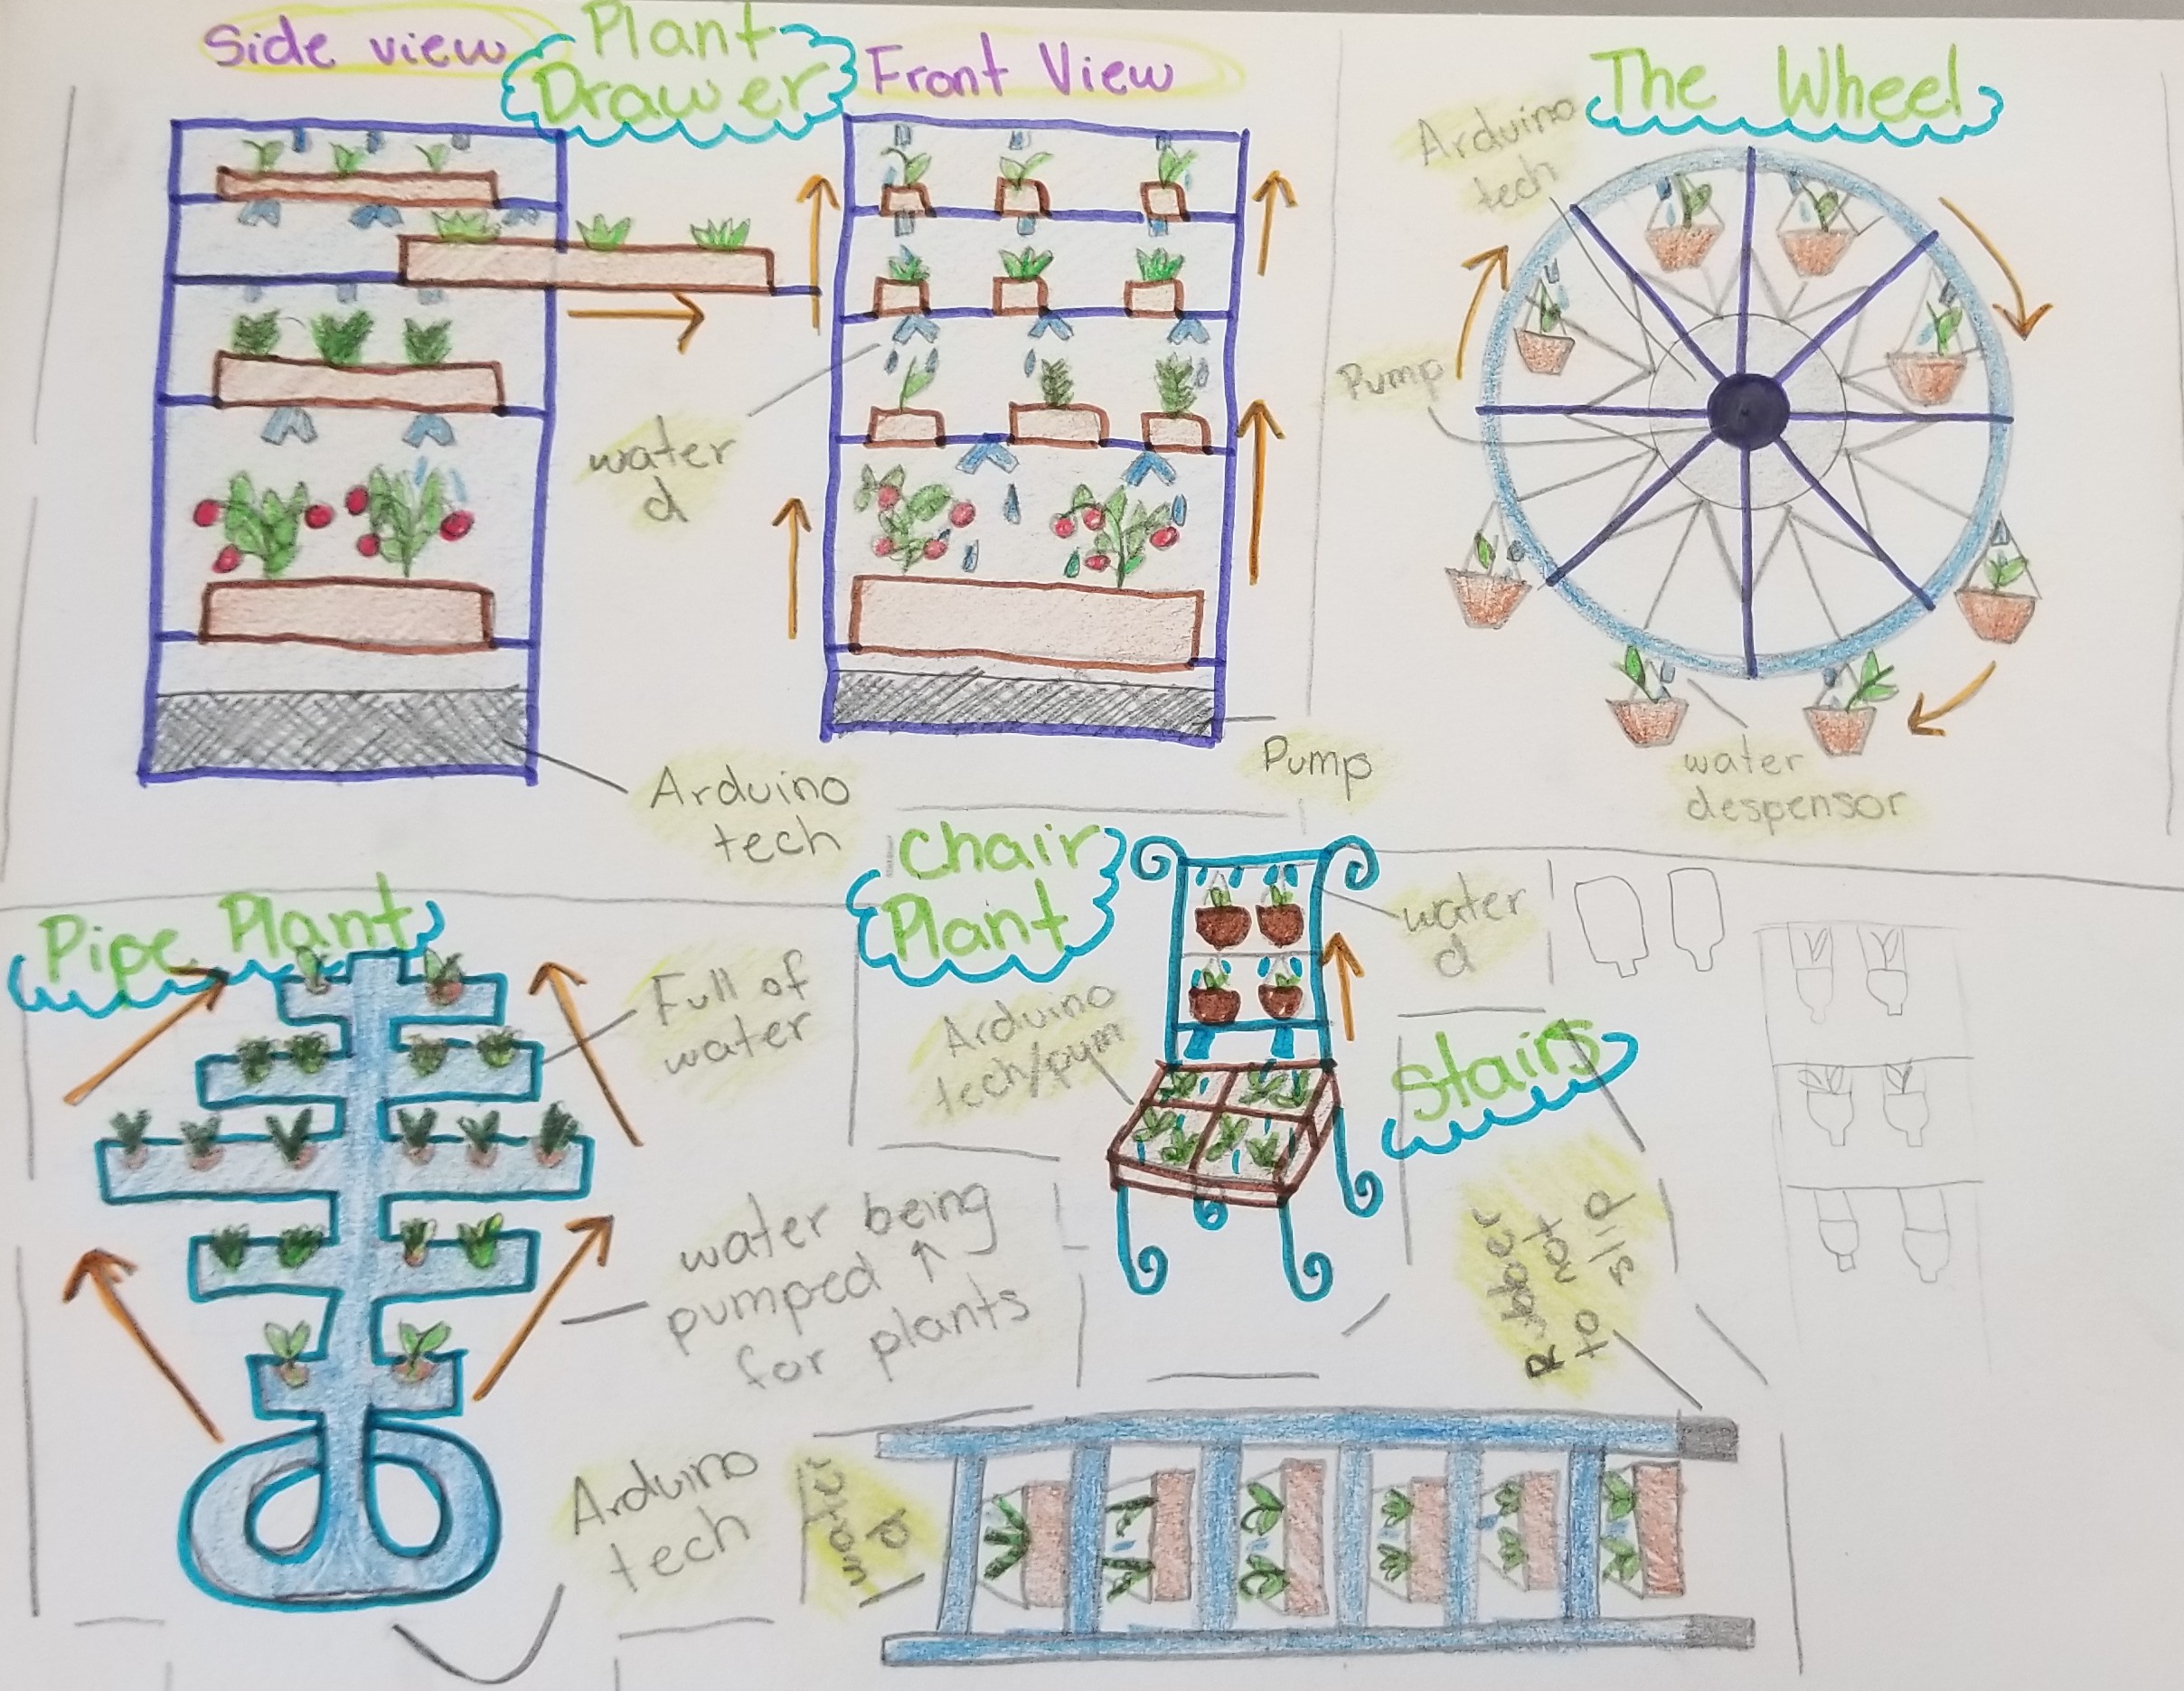 Side view
Plant
Drawer
Front View
water
d
Arduino
tech
Pump
The Wheel
Arduino
tech
Pump
water
despensor
Pipe Plant
Full of
water
water being
pumped ↑
for plants
Arduino
tech
Chair
Plant
water
d
Arduino
tech/pum
Stairs
Rubber
to not
slip
water
d